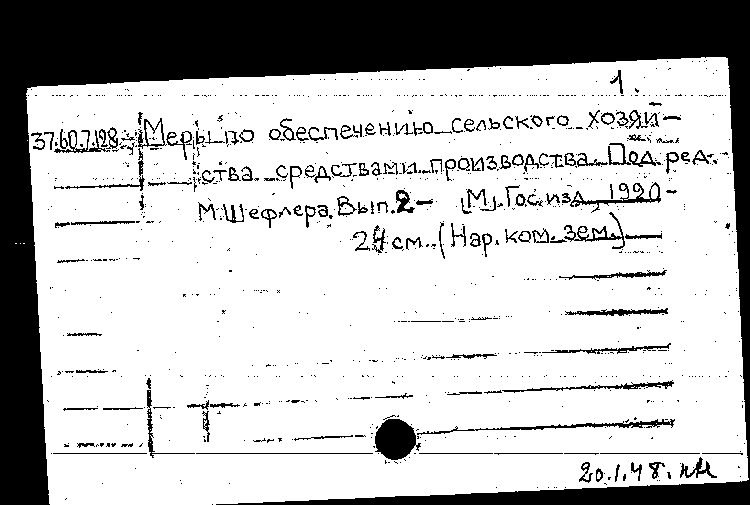 1.
37.60.7.198 Меры по обеспечению сельского хозяй-
ства средствами производства. Под ред.
М. Шефлера. Вып. 2- [М], Гос. изд., 1920-
24 см. (Нар. ком. зем.)
20.1.48.